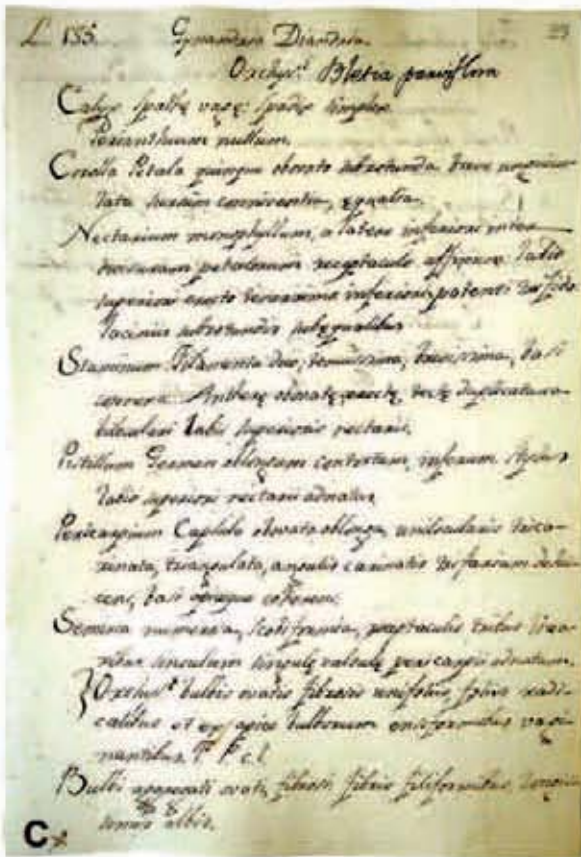 L. 155. Gynandria Diandria. 23
Orchys. Bletia parviflora
Calyx Spathę vagę: spadix simplex
Perianthium nullum.
Corolla Petala quinque obovato subrotunda breve unguicu
lata sursum conniventia, ęqualia.
Nectarium monophyllum, a latere inferiori inter
divisuram petalorum receptaculo affixum: labio
superiori erecto brevissimo inferiori patenti trifido
laciniis subrotundis subęqualibus
Staminum Filamenta duo, tenuissima, brevissima, basi
connexa. Antherę obovatę, erectę, tectę duplicatura
biloculari labii superioris nectarii.
Pistillum Germen oblongum contortum, inferum. Stylus
labio superiori nectarii adnatus
Pericarpium Capsula obovato oblonga, unilocularis trica
rinata, triangulata, angulis carinatis trifariam dehis
cens, basi apiceque cohęrens.
Semina numerosa, Scobiformia, receptaculis tribus linea
ribus singulum singulę valvulę pericarpii adnatum.
Orchys bulbis ovatis fibrosis unifoliis, foliis radi
calibus et ex apice bulborum ensiformibus vagi
nantibus. F. P. c. l.
Bulbi aggregati ovati, fibrosi, fibris filiformibus
albis.
C